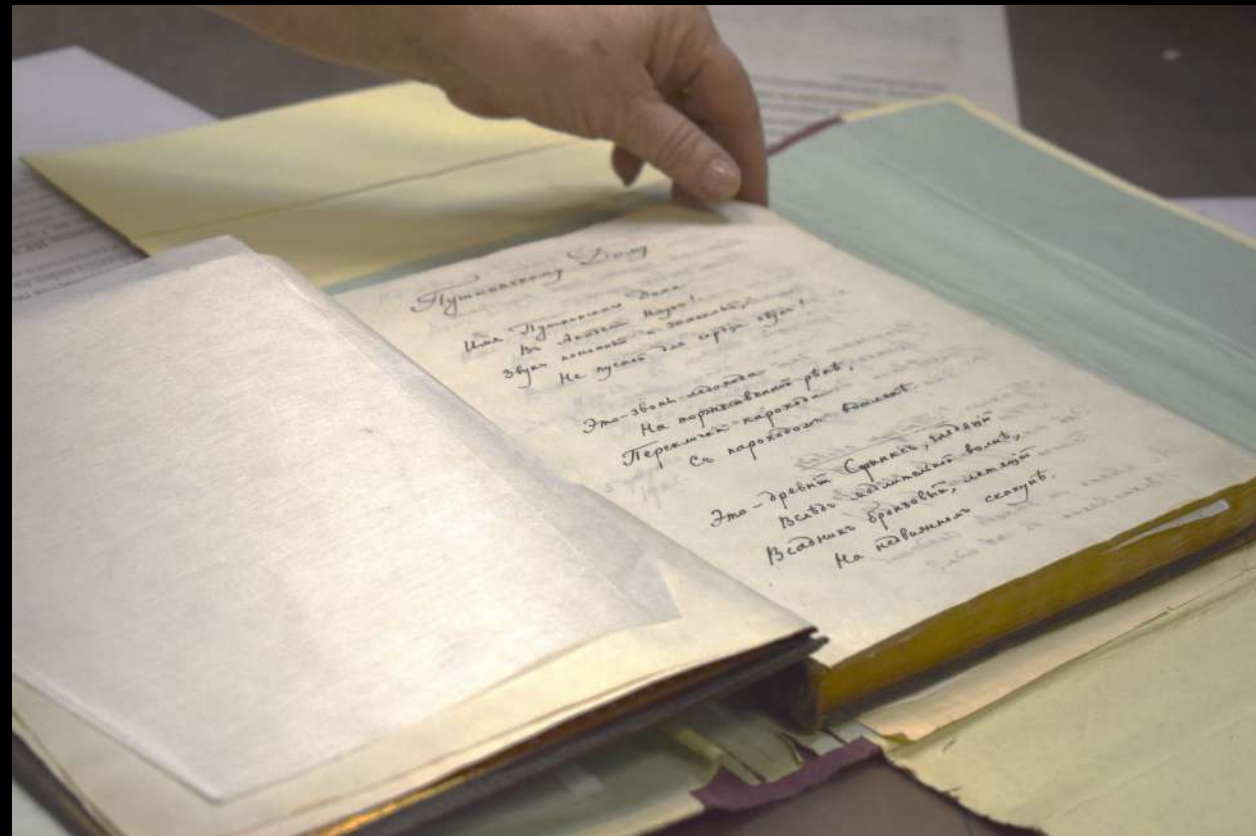 Пушкинскому Дому
Имя Пушкинскаго Дома
Въ Академіи Наукъ!
Звукъ понятный и знакомый,
Не пустой для сердца звукъ!
Это – звоны ледохода
На торжественной рѣкѣ,
Перекличка парохода
Съ пароходомъ вдалекѣ.
Это – древній Сфинксъ, глядящій
Вслѣдъ медлительной волнѣ,
Всадникъ бронзовый, летящій
На недвижномъ скакунѣ.